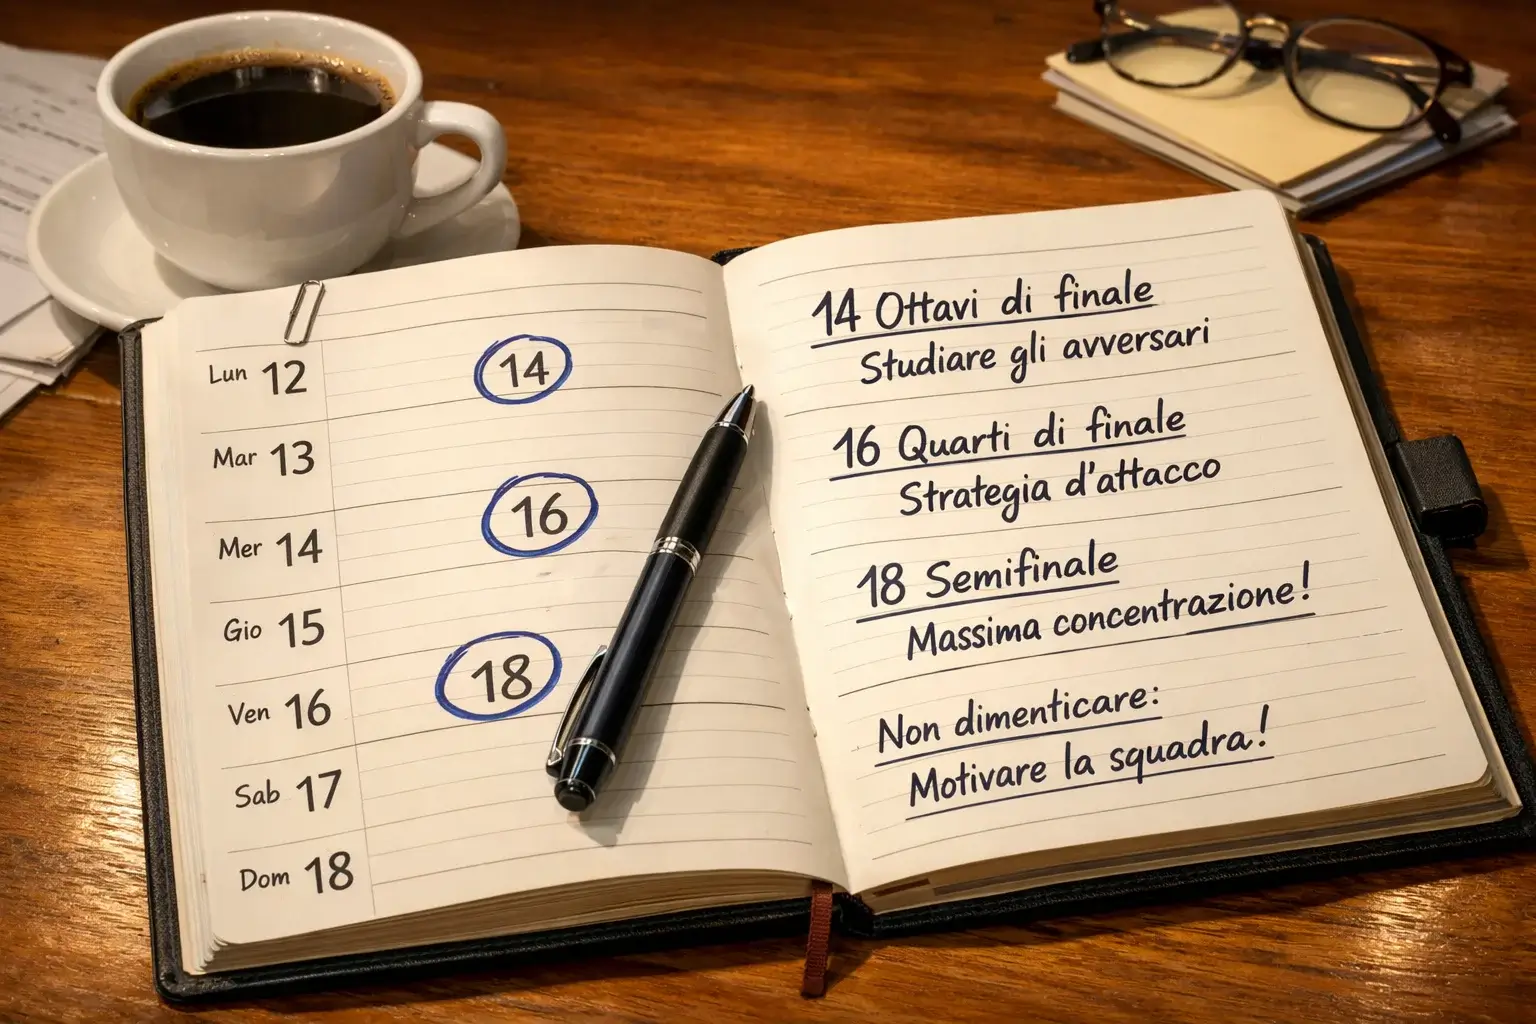 Lun 12
14
Mar 13
Mer 14
16
Gio 15
Ven 16
18
Sab 17
Dom 18
14 Ottavi di finale
Studiare gli avversari
16 Quarti di finale
Strategia d'attacco
18 Semifinale
Massima concentrazione!
Non dimenticare:
Motivare la squadra!